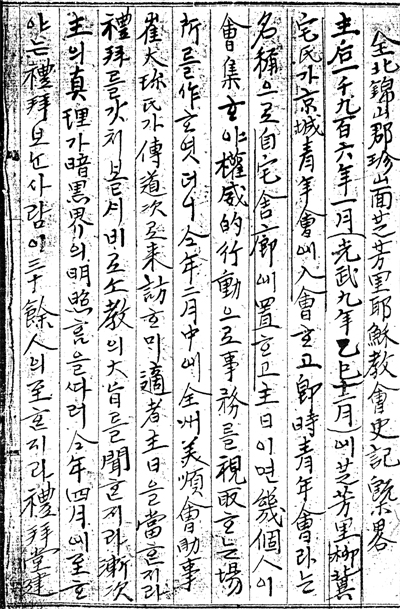 全北錦山郡珍山面芝芳里耶穌敎會史記槩畧
主后一千九百六年一月(光武九年乙巳十二月)에芝芳里柳冀
宅氏가京城靑年會에入會ᄒᆞ고卽時靑年會라는
名稱으로自宅舍廊에置ᄒᆞ고主日이면幾個人이
會集ᄒᆞ야權威的行動으로事務를視取ᄒᆞ는場
所를作ᄒᆞ엿더니今年二月中에全州美順會助事
崔大珎氏가傳道次로來訪ᄒᆞ미適者主日을當ᄒᆞᆫ지라
禮拜를갓치볼ᄉᆡ비로소敎의大旨를聞ᄒᆞᆫ지라漸次
主의眞理가暗黑界의明照홈을ᄯᅡ러今年四月에至ᄒᆞ
야는禮拜보는사람이三十餘人의至ᄒᆞᆫ지라禮拜堂建